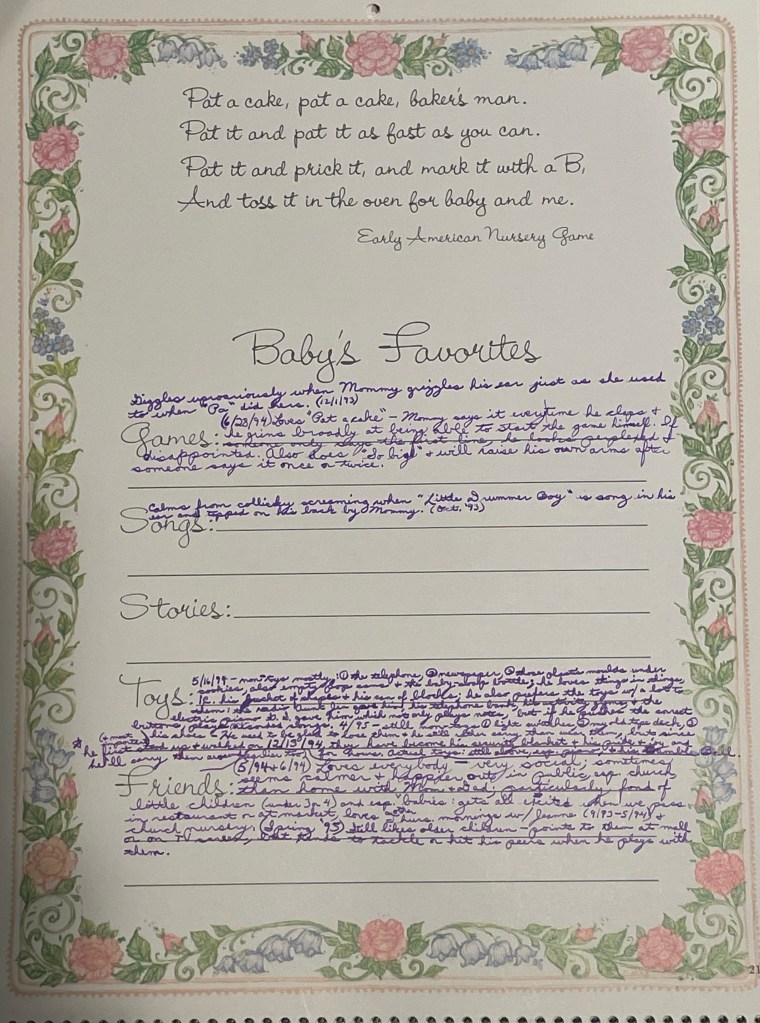 Pat a cake, pat a cake, baker's man.
Pat it and pat it as fast as you can.
Pat it and prick it, and mark it with a B,
And toss it in the oven for baby and me.
Early American Nursery Game
Baby's Favorites
Giggles uproariously when Mommy grizzles his ear just as she used
to when "Pa" did hers. (12/1/93)
(6/28/94) Loves "Pat a cake" - Mommy says it everytime he claps &
Games: he grins broadly at being able to start the game himself. If
someone only says the first line, he looks perplexed &
disappointed. Also does "So big" & will raise his own arms after
someone says it once or twice.
Calms from colicky screaming when "Little Drummer Boy" is song in his
Songs: ear and tapped on his back by Mommy. (Oct. '93)
Stories:
5/16/94 - non-toys mostly: ① the telephone ② newspaper ③ those plastic moulds under
cookies, also empty & the baby bottle; he loves things in strings
Toys: his bucket of shapes & his can of blocks; he also prefers the toys w/ a lot to
them: the radio gave him, his telephone book, his
gave him which not only plays notes, but if he pushes the correct
buttons plays extended songs. 4/95 - still loves ① light switches ② my old tape deck, ③
his shoes - He used to be glad to lose them & he still , but since
he first stood up & walked on 12/13/94, they have become his security blanket &
he'll carry them around
(5/94 & 6/94) Loves everybody - very social; sometimes
Friends: seems calmer & happier out in public, esp. church
than home with Mom & Dad; particularly fond of
little children (under 3 or 4) and esp. babies: gets all excited when we pass
in restaurant or at market, loves Thurs. mornings w/ Jeanne (9/93-5/94) &
church nursery. (Spring '95) Still likes older children - points to them at mall
or on TV screen, but tends to tackle or hit his peers when he plays with
them.
21